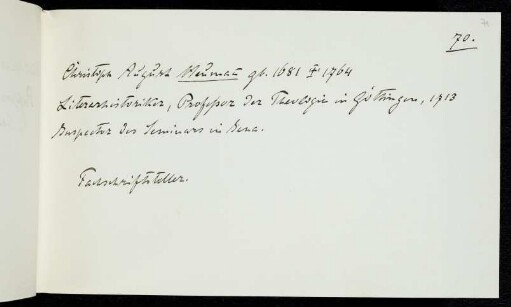 70.
Christoph August Heumann gb. 1681 † 1764
Literarhistoriker, Professor der Theologie in Göttingen, 1713
Inspector des Seminars in Jena.
Fachschriftsteller.